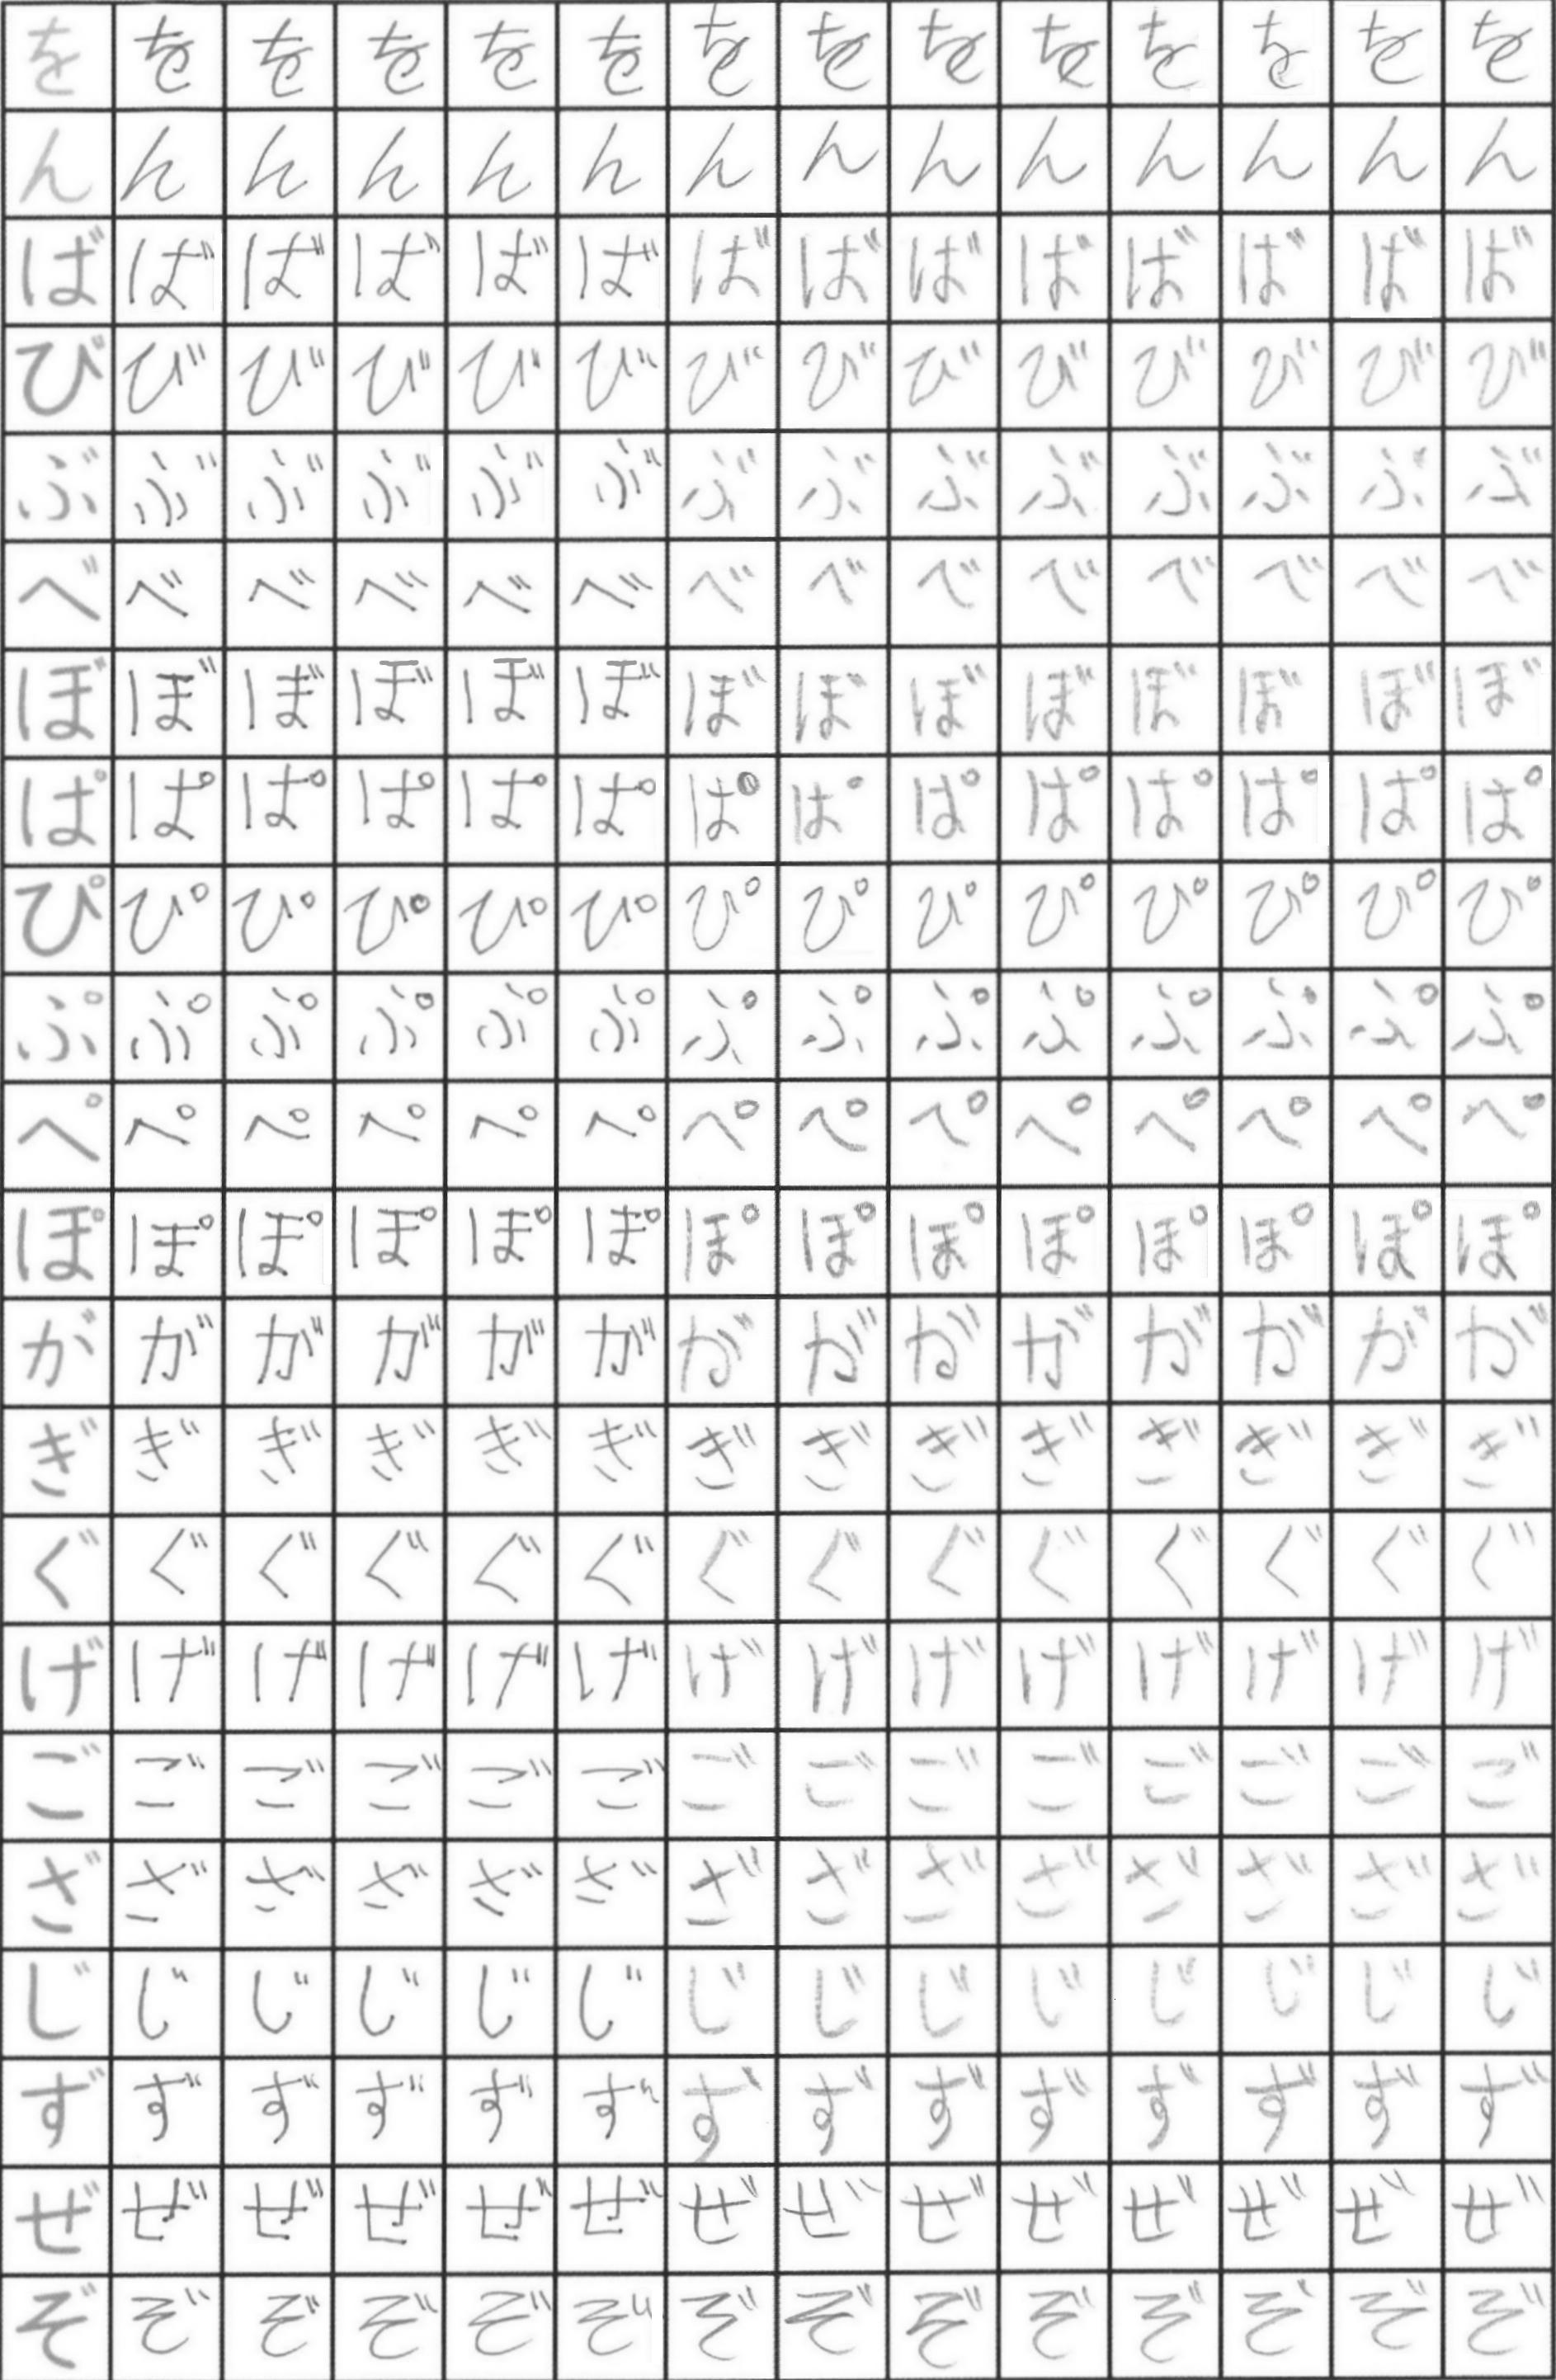 を を を を を を を を を を を を を を
ん ん ん ん ん ん ん ん ん ん ん ん ん ん
ば ば ば ば ば ば ば ば ば ば ば ば ば ば
び び び び び び び び び び び び び び
ぶ ぶ ぶ ぶ ぶ ぶ ぶ ぶ ぶ ぶ ぶ ぶ ぶ ぶ
べ べ べ べ べ べ べ べ べ べ べ べ べ べ
ぼ ぼ ぼ ぼ ぼ ぼ ぼ ぼ ぼ ぼ ぼ ぼ ぼ ぼ
ぱ ぱ ぱ ぱ ぱ ぱ ぱ ぱ ぱ ぱ ぱ ぱ ぱ ぱ
ぴ ぴ ぴ ぴ ぴ ぴ ぴ ぴ ぴ ぴ ぴ ぴ ぴ ぴ
ぷ ぷ ぷ ぷ ぷ ぷ ぷ ぷ ぷ ぷ ぷ ぷ ぷ ぷ
ぺ ぺ ぺ ぺ ぺ ぺ ぺ ぺ ぺ ぺ ぺ ぺ ぺ ぺ
ぽ ぽ ぽ ぽ ぽ ぽ ぽ ぽ ぽ ぽ ぽ ぽ ぽ ぽ
が が が が が が が が が が が が が が
ぎ ぎ ぎ ぎ ぎ ぎ ぎ ぎ ぎ ぎ ぎ ぎ ぎ ぎ
ぐ ぐ ぐ ぐ ぐ ぐ ぐ ぐ ぐ ぐ ぐ ぐ ぐ ぐ
げ げ げ げ げ げ げ げ げ げ げ げ げ げ
ご ご ご ご ご ご ご ご ご ご ご ご ご ご
ざ ざ ざ ざ ざ ざ ざ ざ ざ ざ ざ ざ ざ ざ
じ じ じ じ じ じ じ じ じ じ じ じ じ じ
ず ず ず ず ず ず ず ず ず ず ず ず ず ず
ぜ ぜ ぜ ぜ ぜ ぜ ぜ ぜ ぜ ぜ ぜ ぜ ぜ ぜ
ぞ ぞ ぞ ぞ ぞ ぞ ぞ ぞ ぞ ぞ ぞ ぞ ぞ ぞ